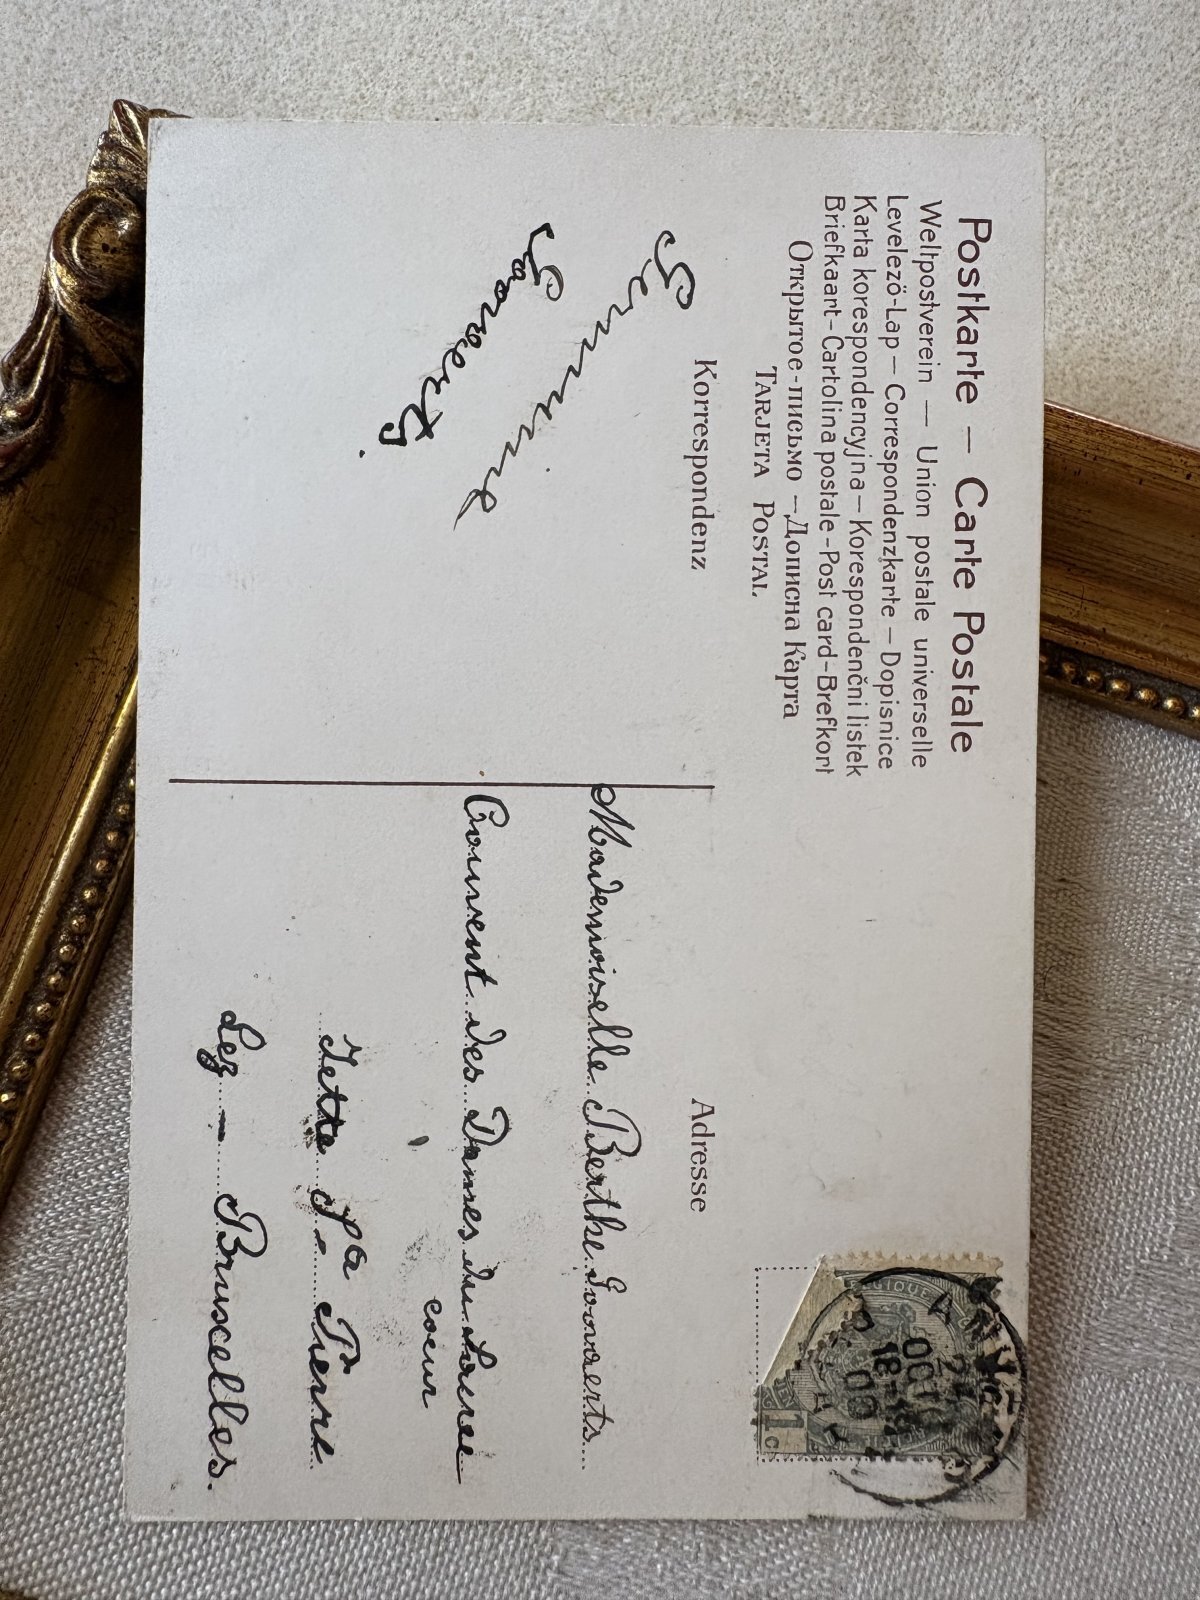 Postkarte — Carte Postale
Weltpostverein — Union postale universelle
Levelezö-Lap — Correspondenzkarte — Dopisnice
Karta korespondencyjna — Korespondenčni listek
Briefkaart - Cartolina postale - Post card - Brefkort
Открытое-письмо — Дописна Карта
TARJETA POSTAL
Korrespondenz
Germaine
Goovaerts.
Adresse
Mademoiselle Berthe Goovaerts
Couvent des Dames du Sacré
coeur
Jette St Pierre
Lez - Bruxelles.
OCTO
18-19
1c